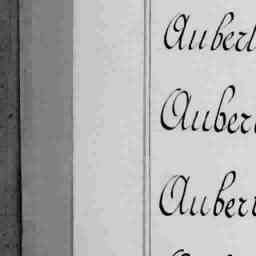 Auberl
Auber
Auber